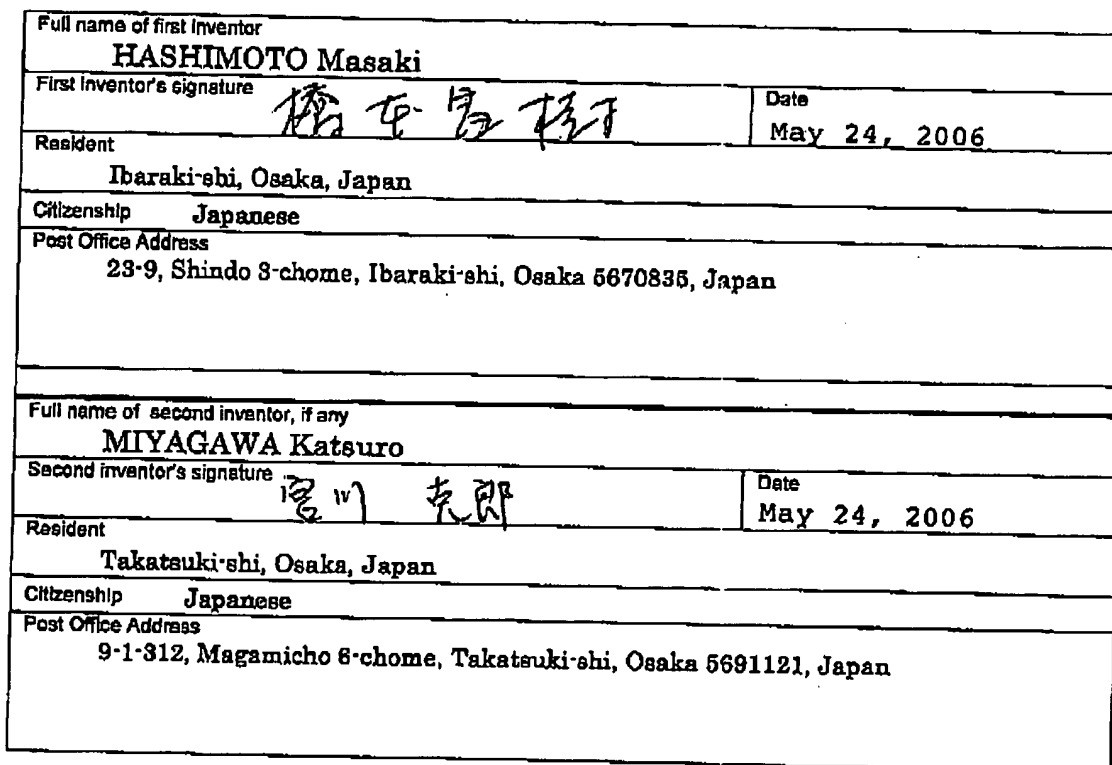 Full name of first inventor
HASHIMOTO Masaki
First inventor's signature
橋本昌樹
Date
May 24, 2006
Resident
Ibaraki-shi, Osaka, Japan
Citizenship Japanese
Post Office Address
23-9, Shindo 3-chome, Ibaraki-shi, Osaka 5670835, Japan
Full name of second inventor, if any
MIYAGAWA Katsuro
Second inventor's signature
宮川 克郎
Date
May 24, 2006
Resident
Takatsuki-shi, Osaka, Japan
Citizenship Japanese
Post Office Address
9-1-312, Magamicho 6-chome, Takatsuki-shi, Osaka 5691121, Japan